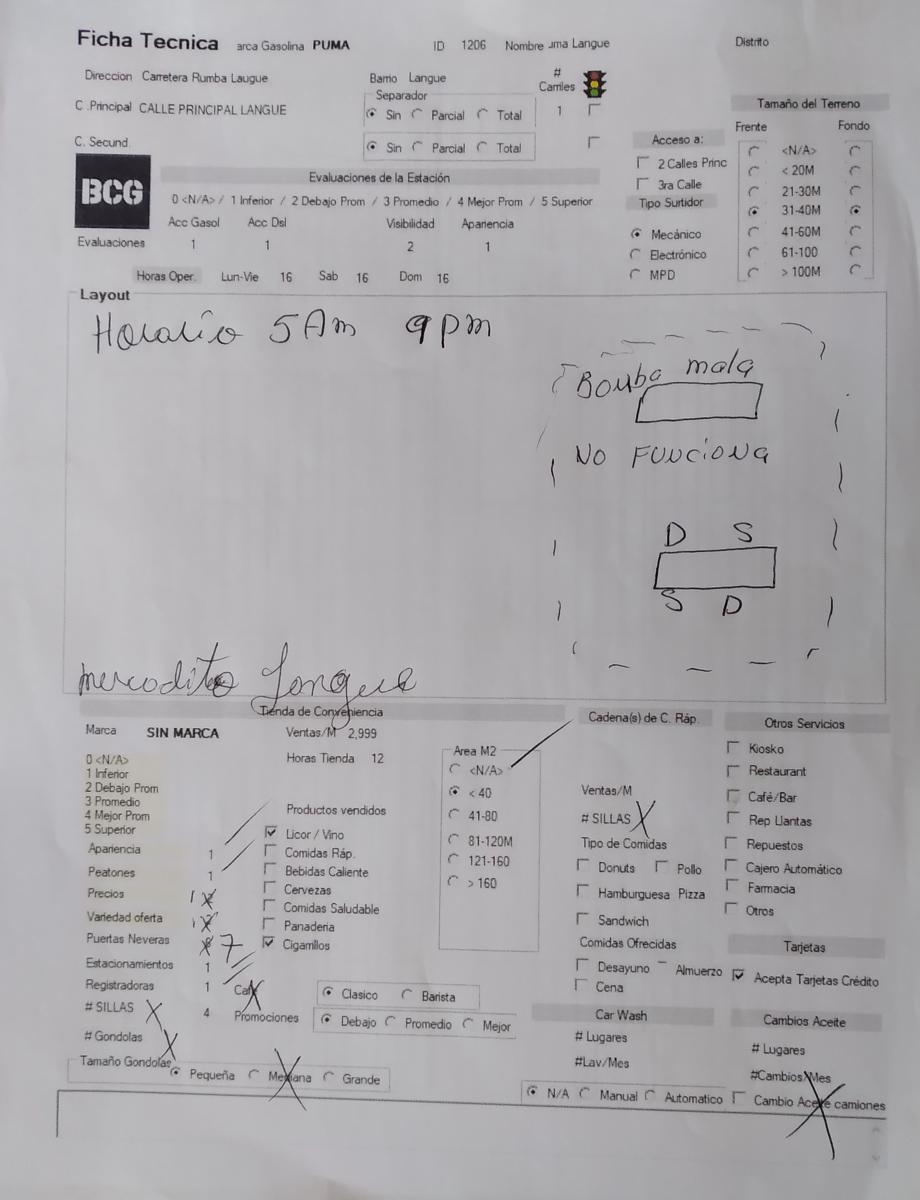 Ficha Tecnica arca Gasolina PUMA ID 1206 Nombre uma Langue Distrito
Direccion Carretera Rumba Laugue Barrio Langue # Carriles
C .Principal CALLE PRINCIPAL LANGUE Separador Sin Parcial Total 1
C. Secund. Sin Parcial Total
Tamaño del Terreno
Frente Fondo
<N/A>
< 20M
21-30M
31-40M
41-60M
61-100
> 100M
Acceso a:
2 Calles Princ
3ra Calle
Tipo Surtidor
Mecánico
Electrónico
MPD
BCG
Evaluaciones de la Estación
0 <N/A> / 1 Inferior / 2 Debajo Prom / 3 Promedio / 4 Mejor Prom / 5 Superior
Acc Gasol Acc Dsl Visibilidad Apariencia
Evaluaciones 1 1 2 1
Horas Oper. Lun-Vie 16 Sab 16 Dom 16
Layout
Horario 5 Am 9 pm
Bomba mala
NO FUNCIONA
D S
S D
mercadito Langue
Tienda de Conveniencia
Marca SIN MARCA Ventas/M 2,999
Horas Tienda 12
0 <N/A>
1 Inferior
2 Debajo Prom
3 Promedio
4 Mejor Prom
5 Superior
Apariencia 1
Peatones 1
Precios 1
Variedad oferta 1
Puertas Neveras 7
Estacionamientos 1
Registradoras 1
# SILLAS 4
# Gondolas
Tamaño Gondolas Pequeña Mediana Grande
Productos vendidos
Licor / Vino
Comidas Ráp.
Bebidas Caliente
Cervezas
Comidas Saludable
Panaderia
Cigarrillos
Café Clasico Barista
Promociones Debajo Promedio Mejor
Area M2
<N/A>
< 40
41-80
81-120M
121-160
> 160
Cadena(s) de C. Ráp.
Ventas/M
# SILLAS
Tipo de Comidas
Donuts Pollo
Hamburguesa Pizza
Sandwich
Comidas Ofrecidas
Desayuno Almuerzo
Cena
Car Wash
# Lugares
#Lav/Mes
N/A Manual Automatico
Otros Servicios
Kiosko
Restaurant
Café/Bar
Rep Llantas
Repuestos
Cajero Automático
Farmacia
Otros
Tarjetas
Acepta Tarjetas Crédito
Cambios Aceite
# Lugares
#Cambios/Mes
Cambio Aceite camiones